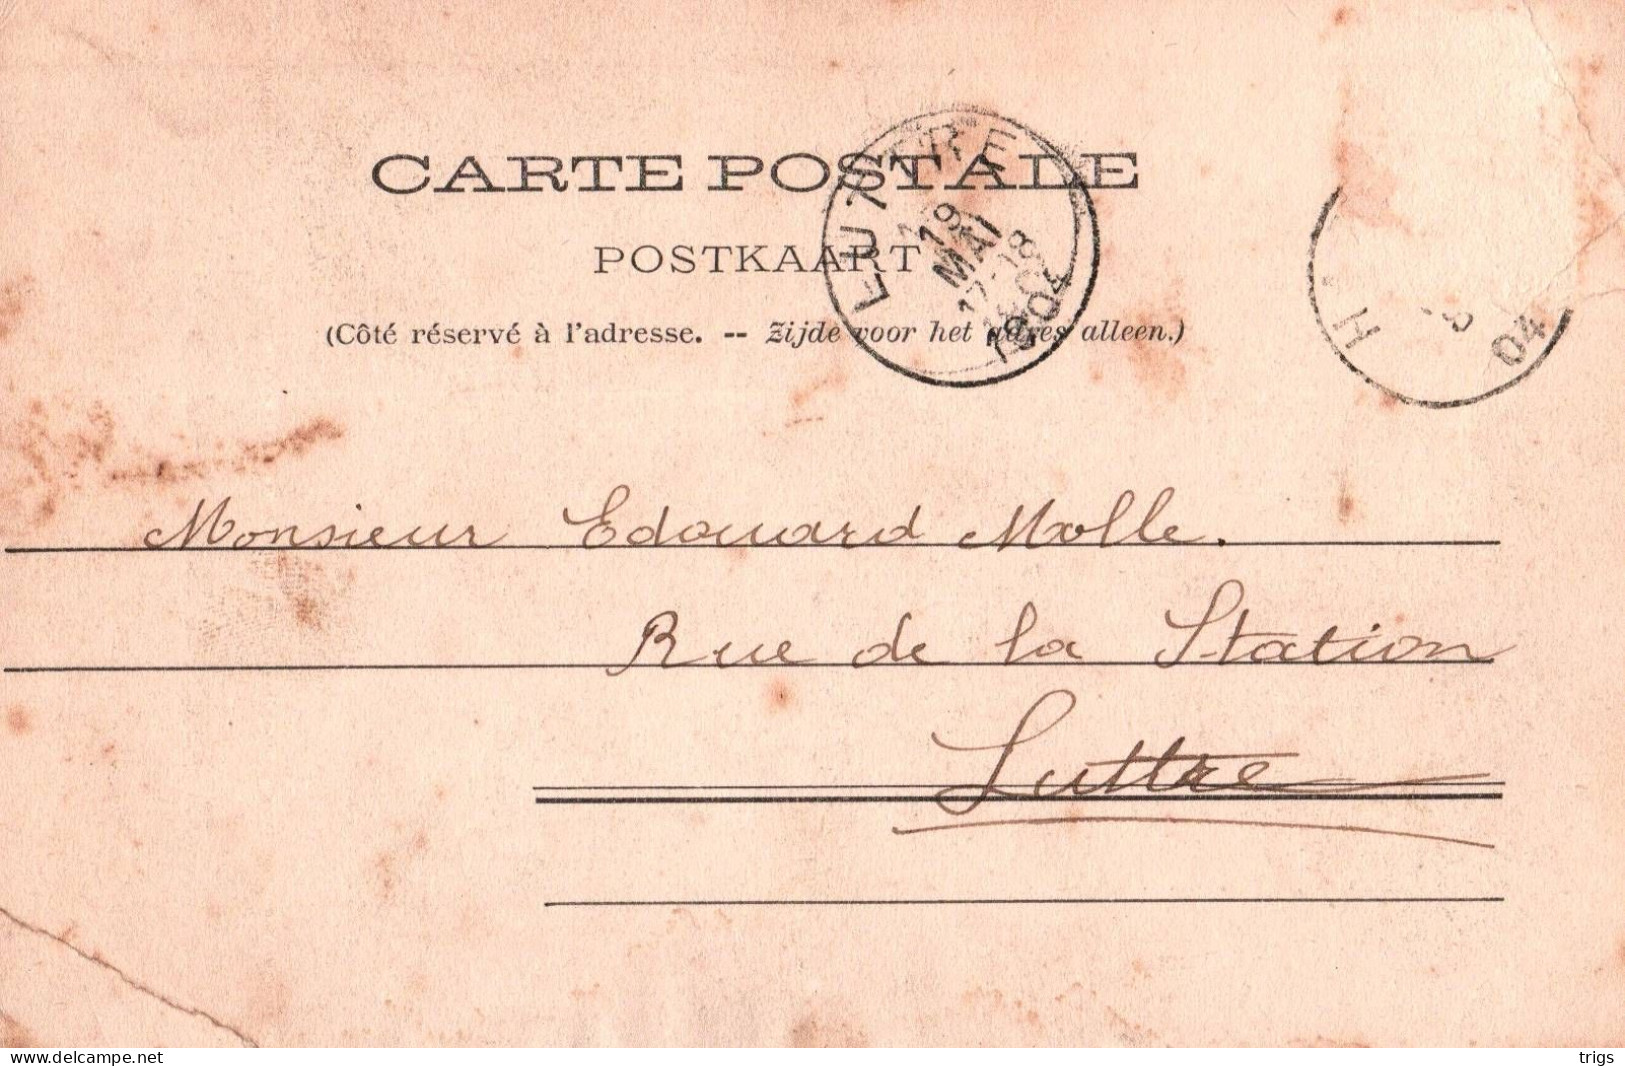 CARTE POSTALE
POSTKAART
(Côté réservé à l'adresse. -- Zijde voor het adres alleen.)
LUTTRE
19
MAI
17-18
1904
H
8
04
Monsieur Edouard Molle.
Rue de la Station
Luttre
delcampe.net
trigs